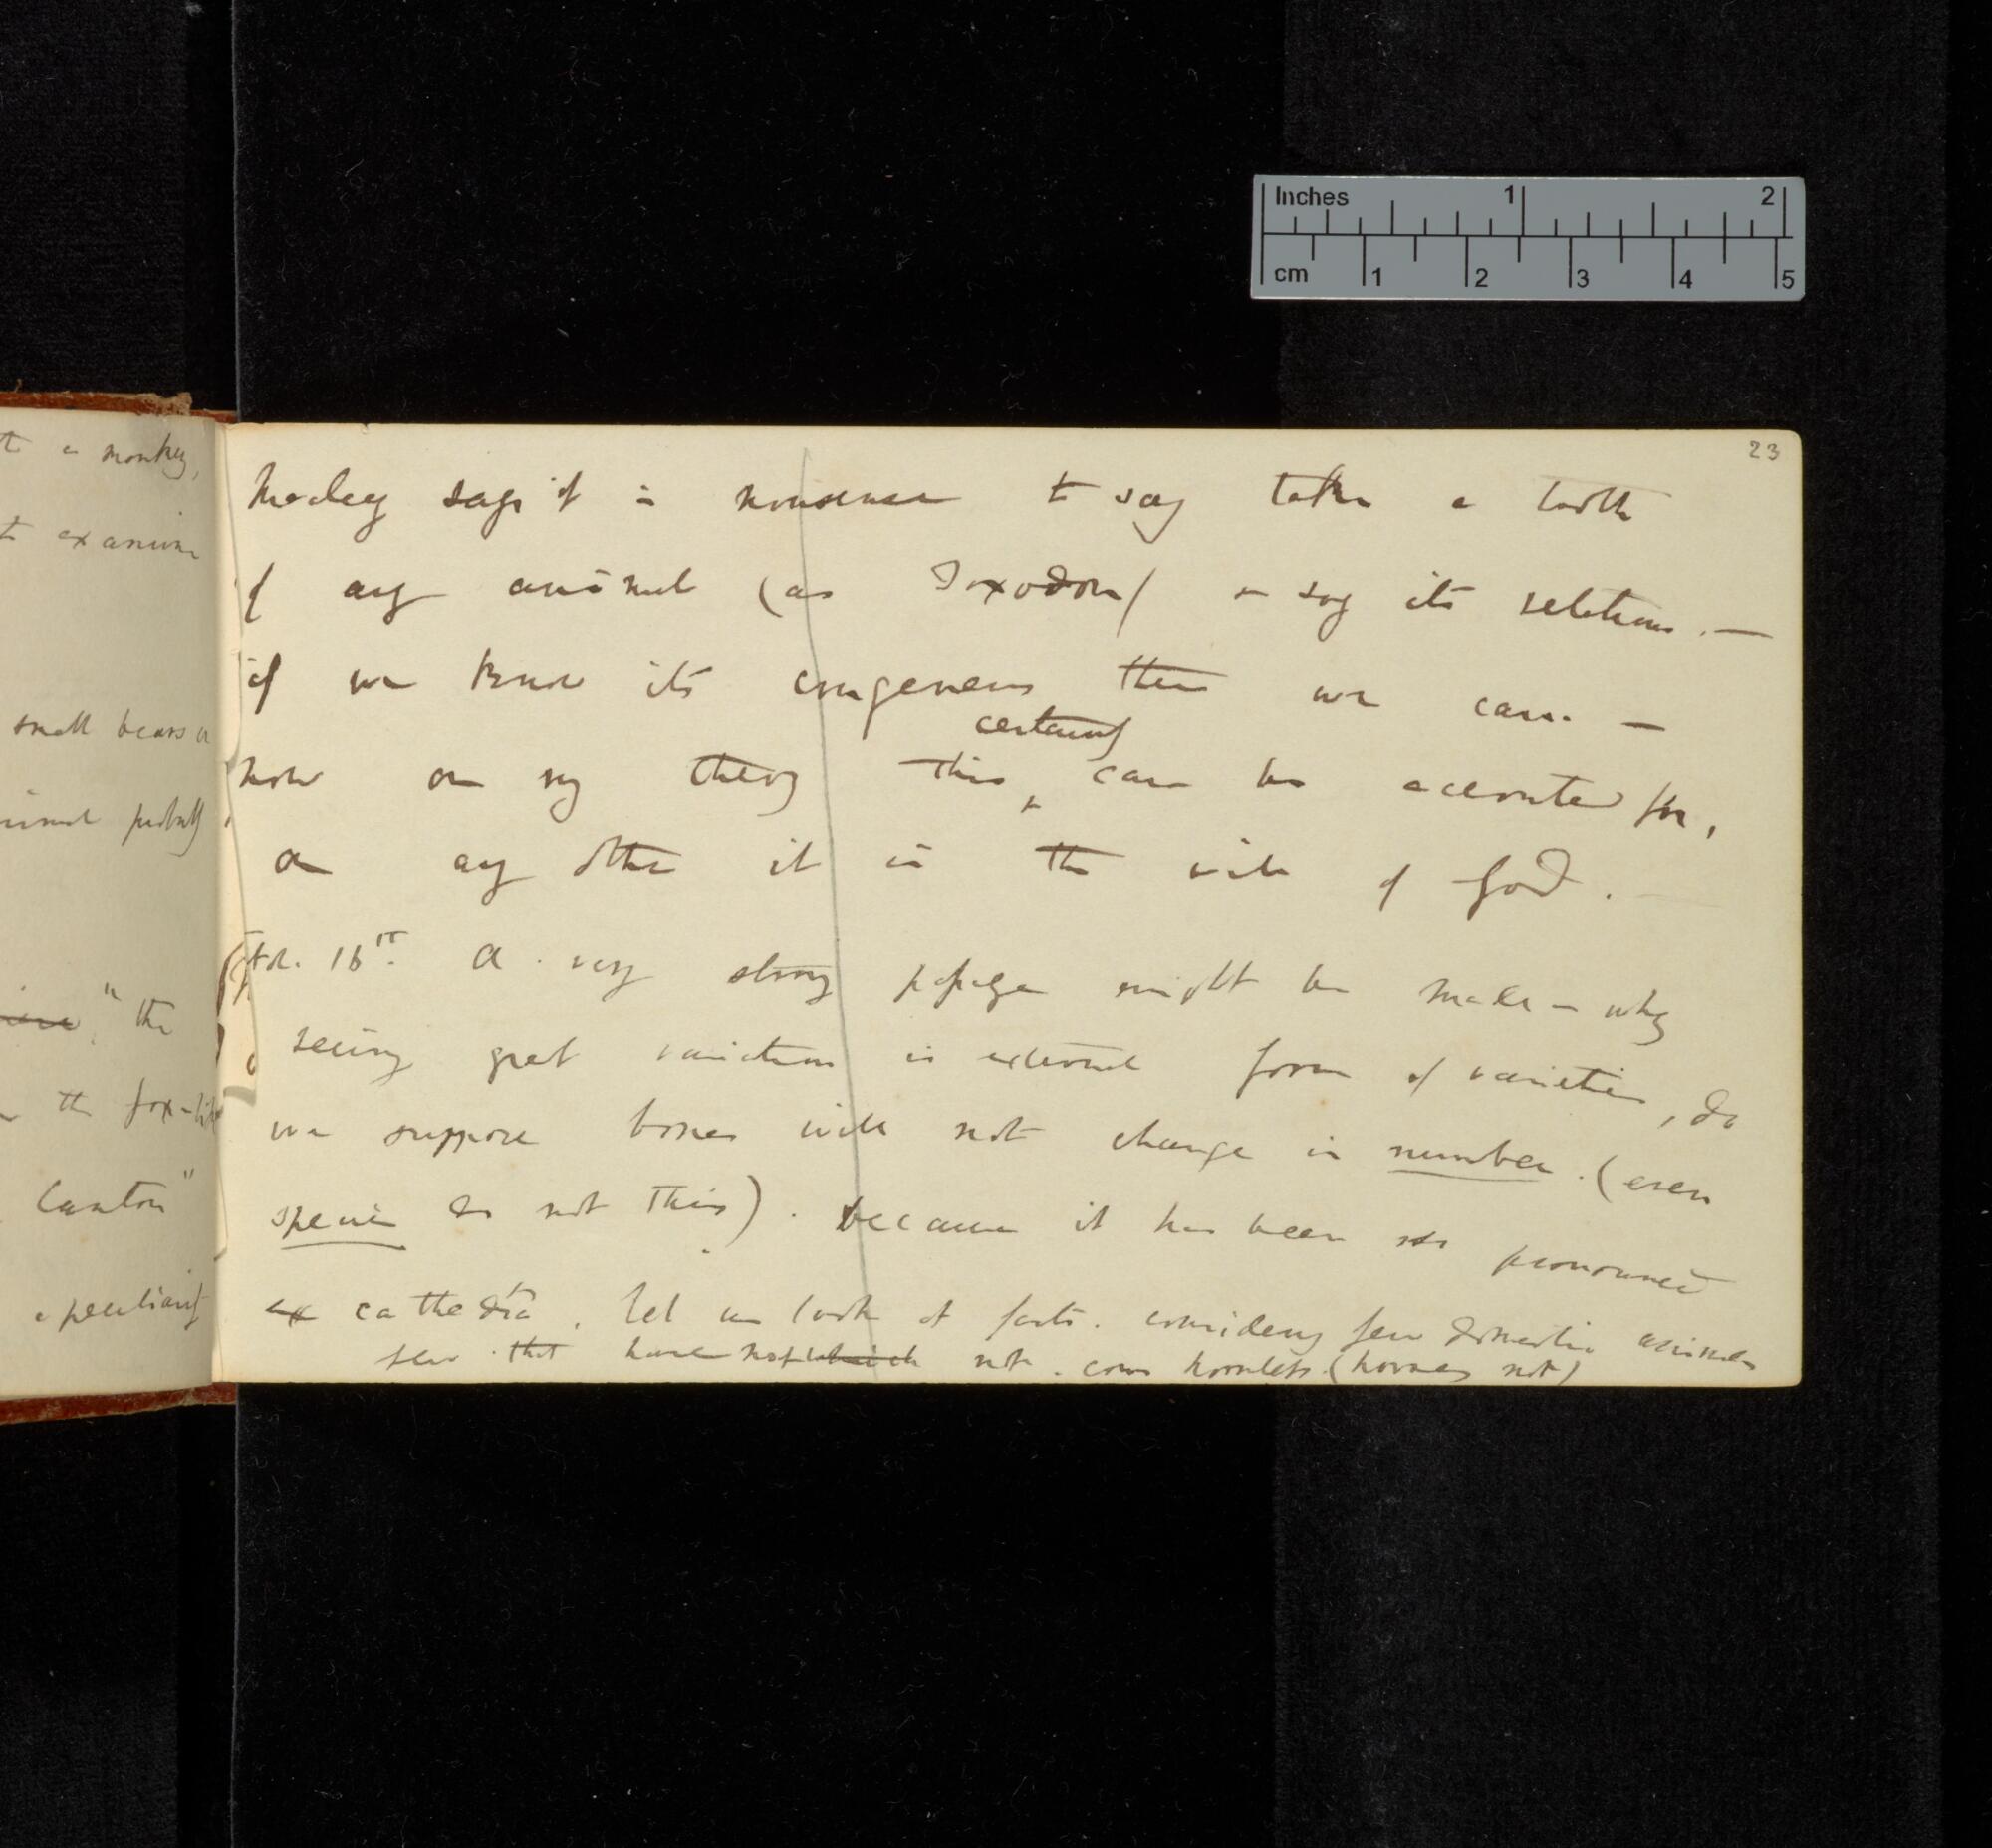 t a monkey,
t examine
small bears a
animal probably
" the
the fox-like
Canton"
a peculiarity
23
Macleay says it is nonsense to say take a tooth
of any animal (as Toxodon) & say its relations. —
if we know its congeners then we can. —
certainly
now on my theory this can be accounted for,
on any other it is the will of God.
Feb. 16th. A very strong passage might be made — why
seeing great variation in external form of varieties, do
we suppose bones will not change in number. (even
species do not this). because it has been so pronounced
ex cathedrâ. let us look at facts. considering few domestic animals
few that have not which not. cows hornless. (horns not)
Inches 1 2
cm 1 2 3 4 5